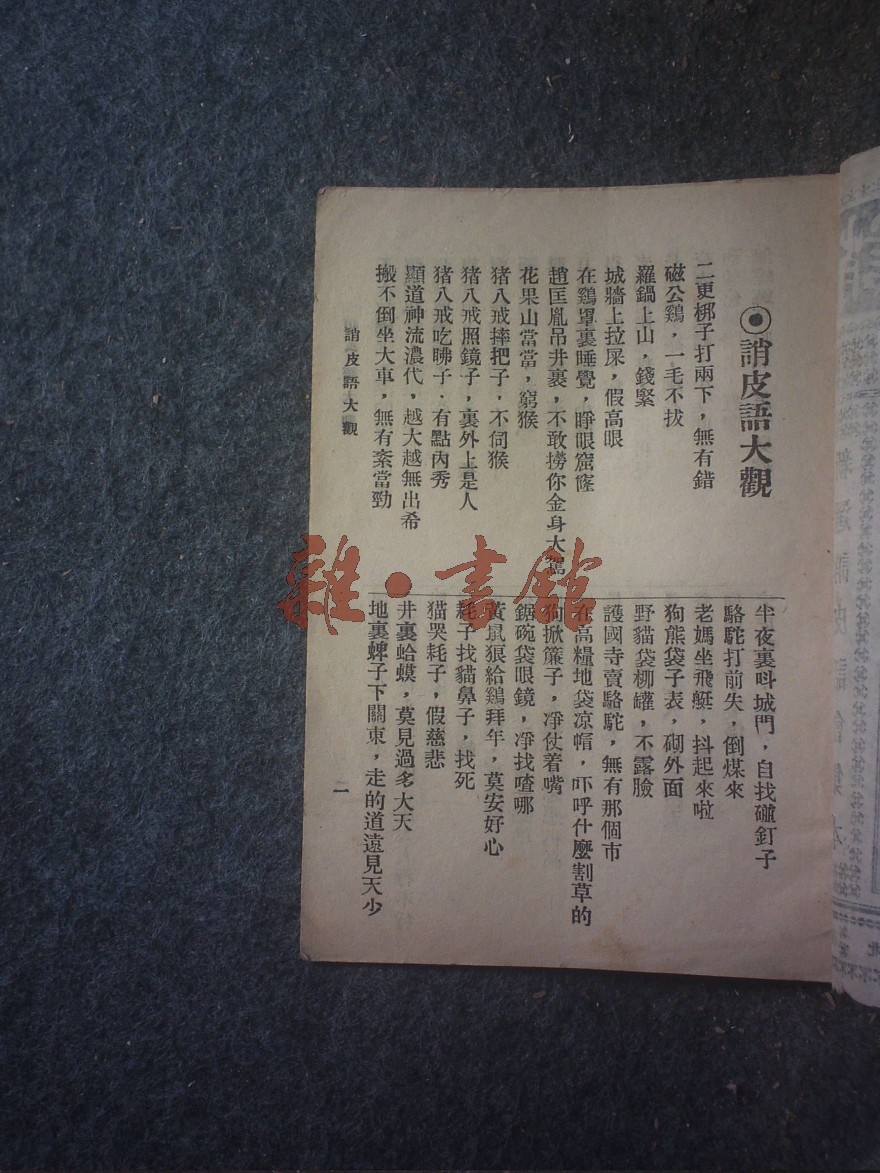 誚皮語大觀
二更梆子打兩下，無有錯
磁公鷄，一毛不拔
羅鍋上山，錢緊
城牆上拉屎，假高眼
在鷄罩裏睡覺，睜眼窟窿
趙匡胤吊井裏，不敢撈你金身大駕
花果山當當，窮猴
猪八戒摔把子，不伺猴
猪八戒照鏡子，裏外上是人
猪八戒吃昲子．有點內秀
顯道神流濃代，越大越無出希
搬不倒坐大車，無有紊當勁
半夜裏呌城門，自找磞釘子
駱駝打前失，倒煤來
老媽坐飛艇，抖起來啦
狗熊袋子表，砌外面
野貓袋栁罐，不露臉
護國寺賣駱駝，無有那個市
在高糧地袋凉帽，吓呼什麼割草的
狗掀簾子，凈仗着嘴
鋸碗袋眼鏡，凈找喳哪
黃鼠狼給鷄拜年，莫安好心
耗子找貓鼻子，找死
猫哭耗子，假慈悲
井裏蛤蟆，莫見過多大天
地裏蜱子下關東，走的道遠見天少
誚皮語大觀
二
雜·書館